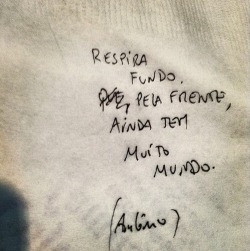 RESPIRA
FUNDO.
PELA FRENTE,
AINDA TEM
MUITO
MUNDO.
(Antônio)